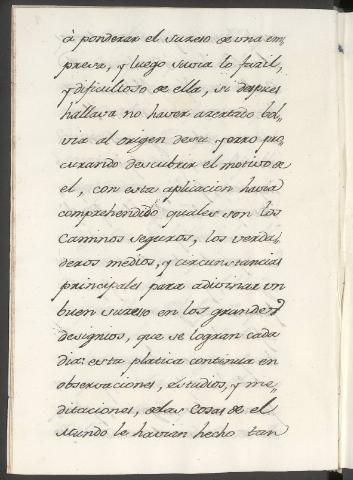 à ponderar el suceso de una em-
presa, y luego savia lo facil,
y dificultoso de ella, si despues
hallava no haver azertado bol-
via al origen de su yerro pro-
curando descubrir el motivo de
el, con esta aplicacion havia
comprehendido quales son los
Caminos seguros, los verda-
deros medios, y circunstancias
principales para adivinar un
buen suceso en los grandes
designios, que se logran cada
dia: esta platica continua en
observaciones, estudios, y me-
ditaciones, de las Cosas de el
Mundo le havian hecho tan